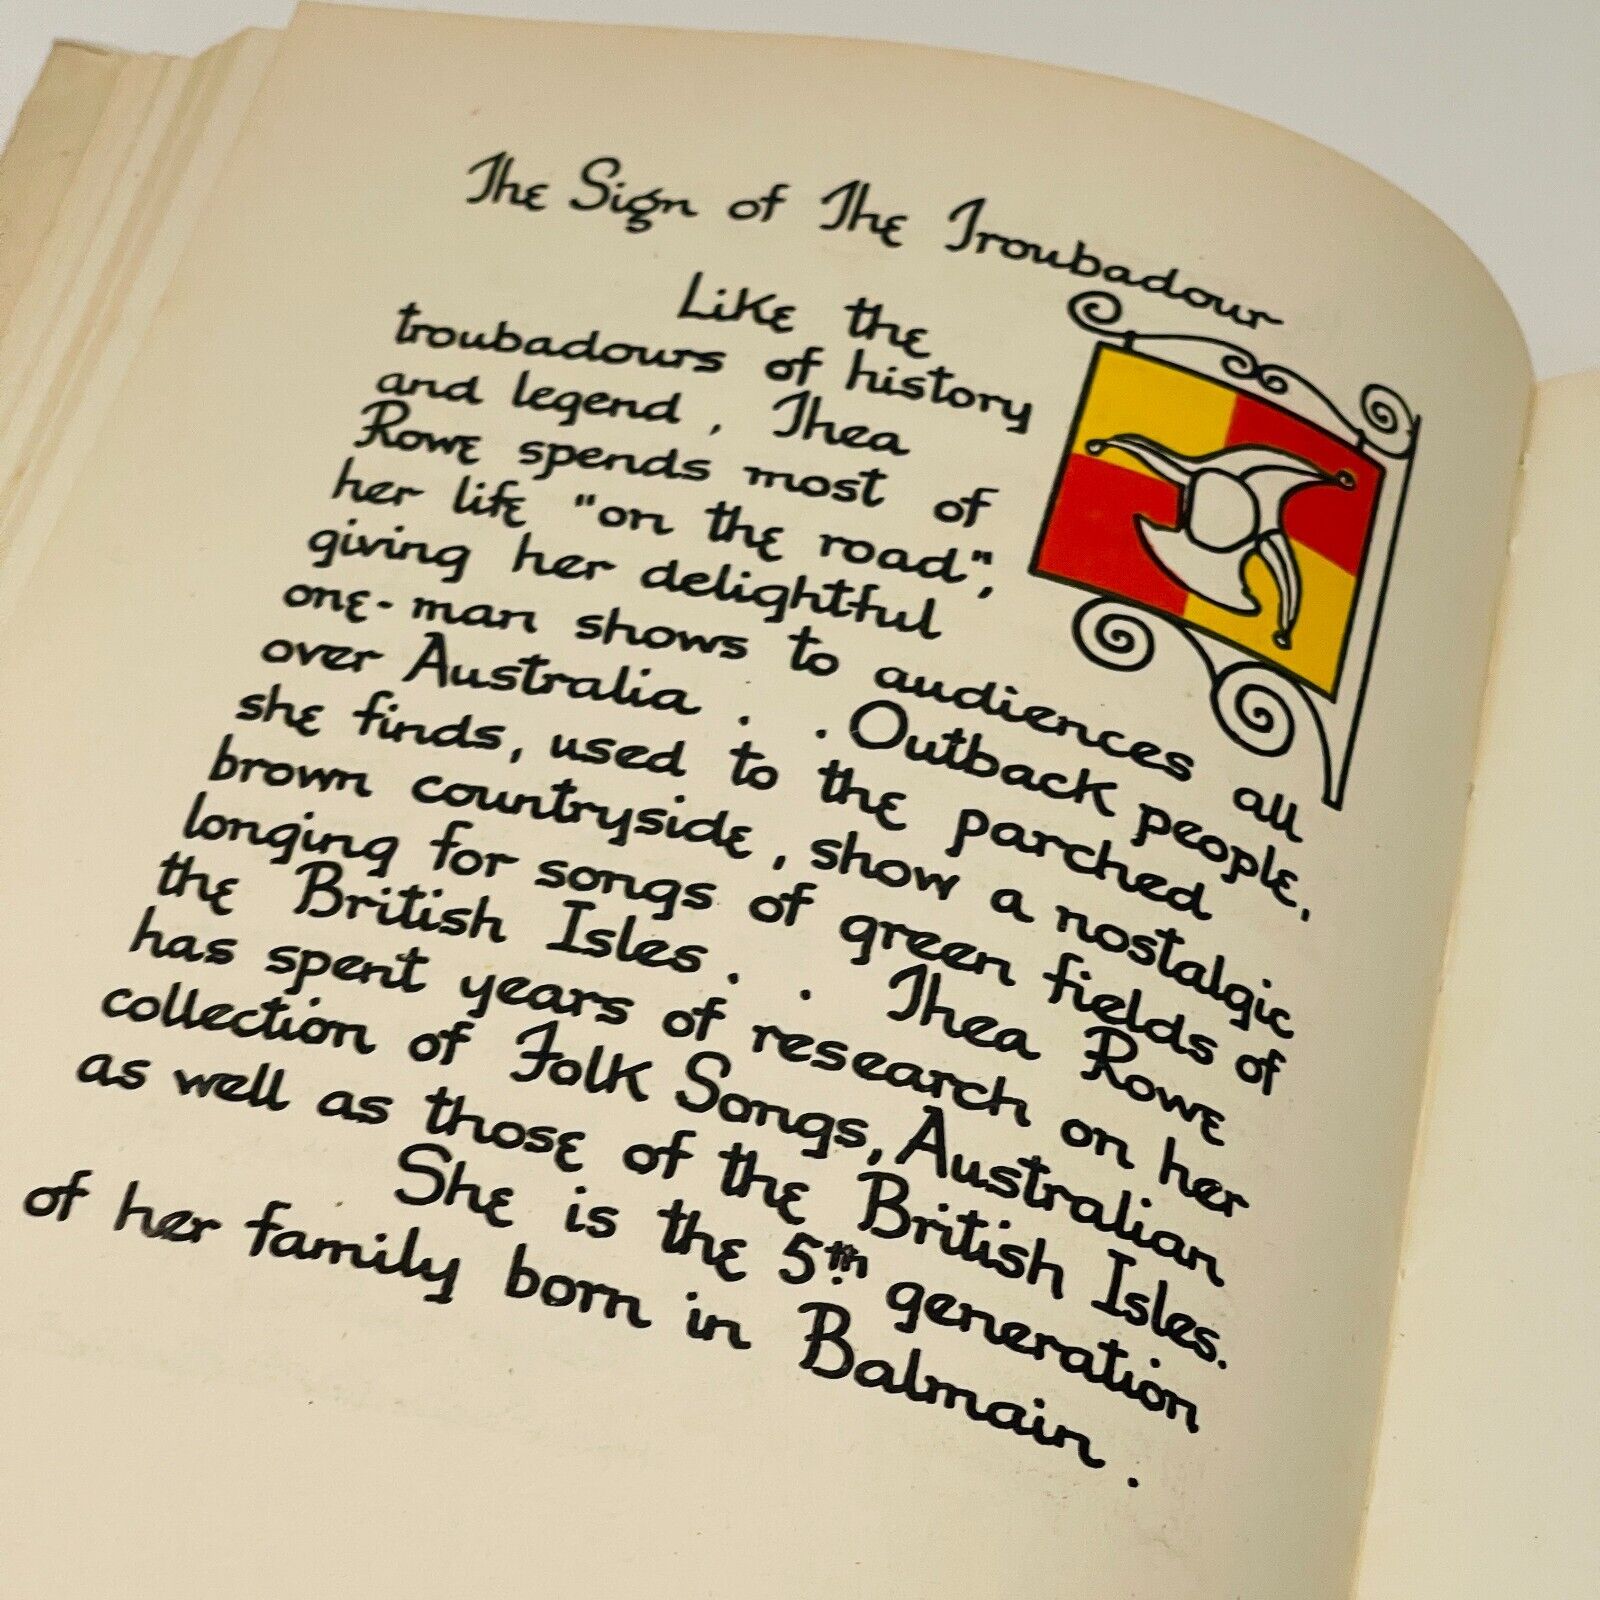 The Sign of The Troubadour
Like the
troubadours of history
and legend, Thea
Rowe spends most of
her life "on the road",
giving her delightful
one-man shows to audiences all
over Australia . . Outback people,
she finds, used to the parched
brown countryside, show a nostalgic
longing for songs of green fields of
the British Isles . . Thea Rowe
has spent years of research on her
collection of Folk Songs, Australian
as well as those of the British Isles.
She is the 5th generation
of her family born in Balmain .